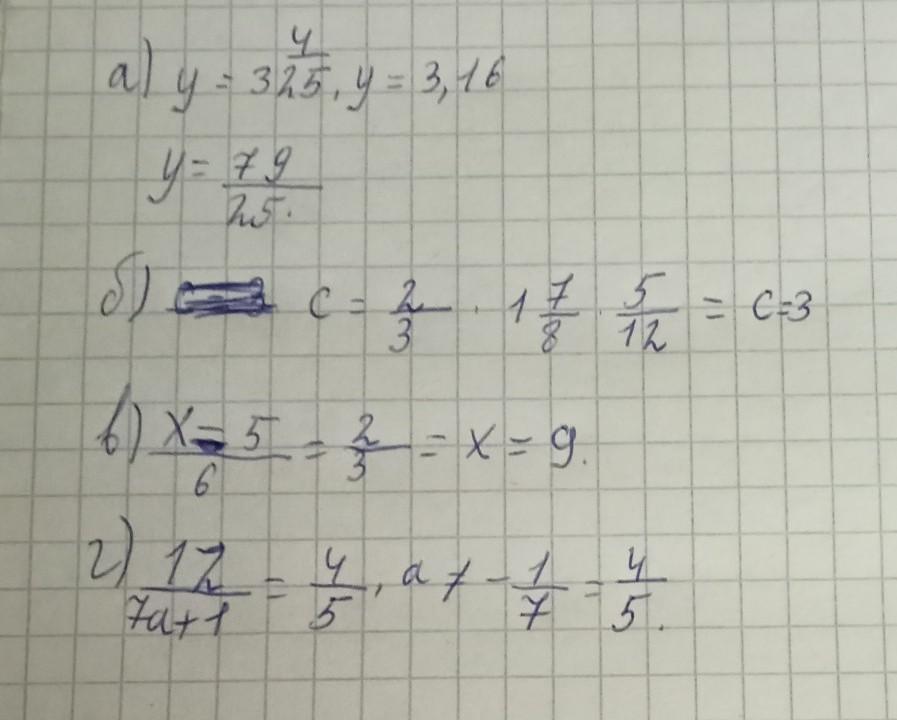 а) y = 3 4/25, y = 3,16
y = 79/25.
б) c = 2/3 · 1 7/8 · 5/12 = c=3
в) x - 5/6 = 2/3 = x = 9.
г) 12/7a+1 = 4/5, a ≠ - 1/7 = 4/5.